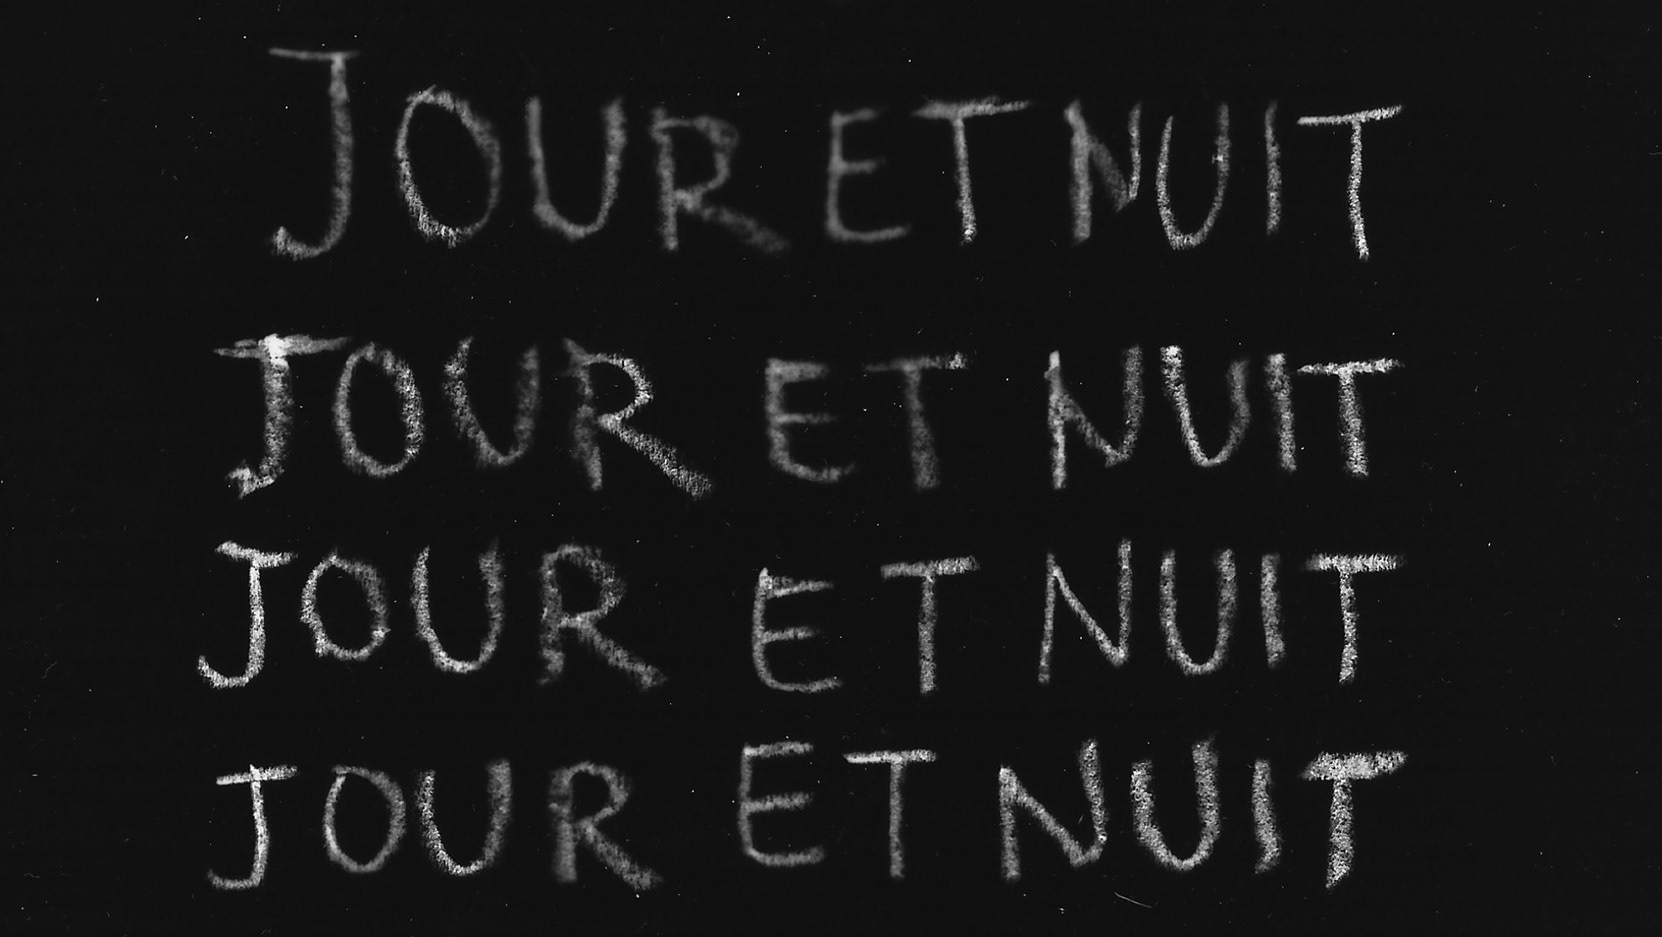 JOUR ET NUIT
JOUR ET NUIT
JOUR ET NUIT
JOUR ET NUIT